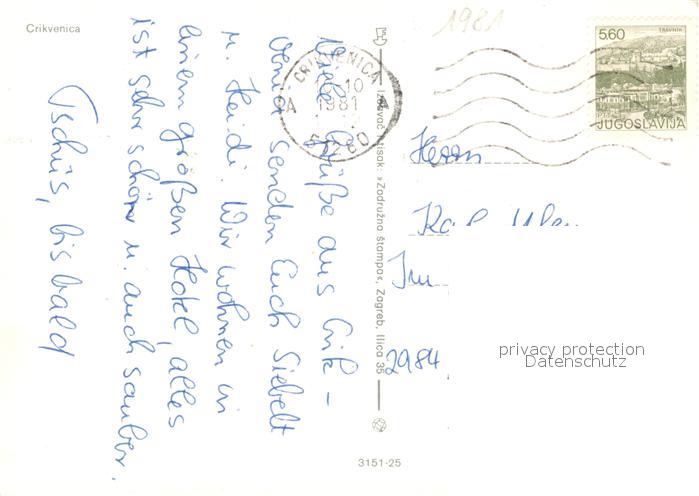 Crikvenica
1981
5.60
TRAVNIK
JUGOSLAVIJA
CRIKVENICA
10
1981
Viele Grüße aus Crik-
venica senden Euch Siebelt
u. Heidi. Wir wohnen in
einem großen Hotel, alles
ist sehr schön u. auch sauber.
Tschüs, bis bald
Izdavač i tisak: »Zadružna štampa«, Zagreb, Ilica 35
Herrn
Karl
Im
2984
privacy protection
Datenschutz
3151-25